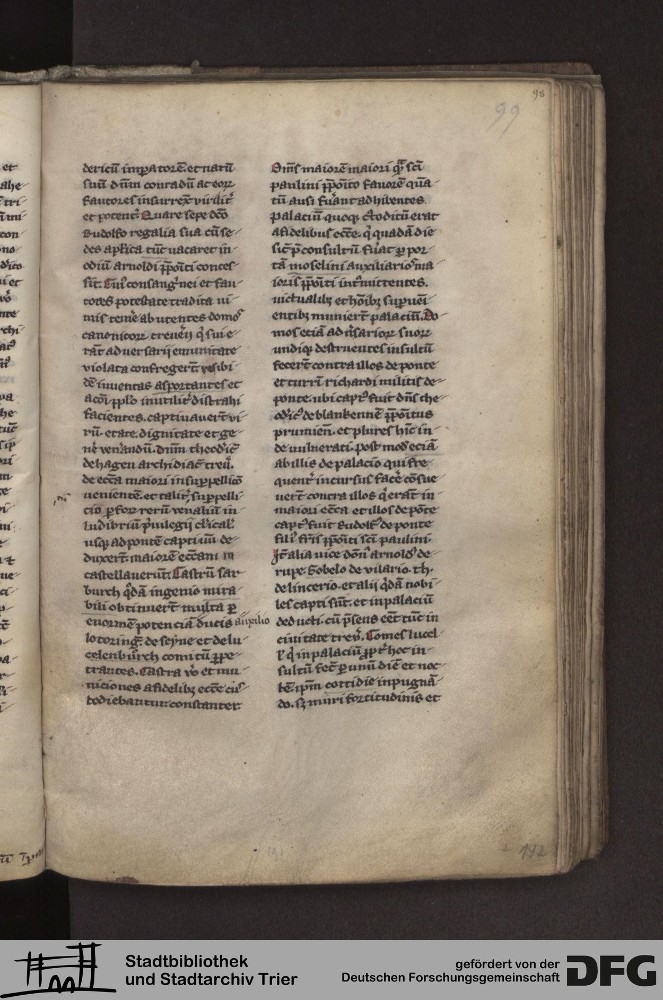 98
99
dericū impatorē. et natū
suū dnm conradū ac eoꝝ
fautores insurrex̄ virilit̄
et potent̄. Quare sepe dc̄o
Rudolfo regalia sua cū se
des aplica tūc vacaret in
odiū arnoldi ꝓpoiti conces
sit. consang̃nei et fau
tores potestate tradita ni
mis teme abutentes domos
canonicoꝝ treuen̄ q̇ sui e
rāt adversarij emunitate
violata confregert̄
inventas asportantes et
pplo inutilit̄ distrahi
facientes. captivavert̄ vi
rū. etate. dignitate et ge
nē venandū. dnm theodic̄
de hagen archidiac̄ treu.
de ecca maiori in suppellicō
venientē. et talit̄ suppelli
cio p for rerū venaliū in
ludibriū pvilegij clical
usq; ad pontē captivū de
duxert̄. maiorē ecctam in
castellaverūt. Castrū sar
burch qdā ingenio mira
bili obtinuert̄ multa p
enormē potencia ducis auxilio
lotoring̃. de seyne et de lu
celenburch comitū ꝓpe
trantes. Castra vo et mu
niciones a fidelib; ecce cus
todiebantur. constanter
Om̄s maiorē maiori q̃ sci
paulini ꝓpoito favorē quā
tū ausi fuant adhibentes.
Palaciū quoq; custoditū erat
a fidelibus ecce. q̇ quadā die
sic p consultū fuat p por
tā moselini auxiliarios ma
ioris ꝓpoiti intmittentes.
victualib; et hoib; supveni
entib; muniert̄ palaciū. Do
mos etiā adusarioꝝ suoꝝ
undiq; destruentes insultū
fecert̄ contra illos de ponte
et turri richardi militis de
ponte. ubi capt̄ fuit dn̄s the
odic̄ de blankennē ꝓpositus
prumien. et plures hic̄ in
de vulnerati. post mod̄ eciā
ab illis de palacio qui fre
quent̄ incursus face cōsue
vert̄ contra illos q̇ erāt in
maiori ecca et illos de pōte
capt̄ fuit Rudolf̄ de ponte
fili fris ꝓpoiti sci paulini.
It alia vice dōn arnold̄ de
rupe. Gobelo de vilario. th.
de lincerio. et alij qdā nobi
les capti sūt. et in palaciū
deducti. cū psens eēt tūc in
civitate trev. Comes lucel
q̇ in palaciū ꝓpt̄ hoc in
sultū fec̄t p unū diē et noc
tē ipm cottidie inpugnā
do. s; muri fortitudinis et
142
Stadtbibliothek
und Stadtarchiv Trier
gefördert von der
Deutschen Forschungsgemeinschaft
DFG